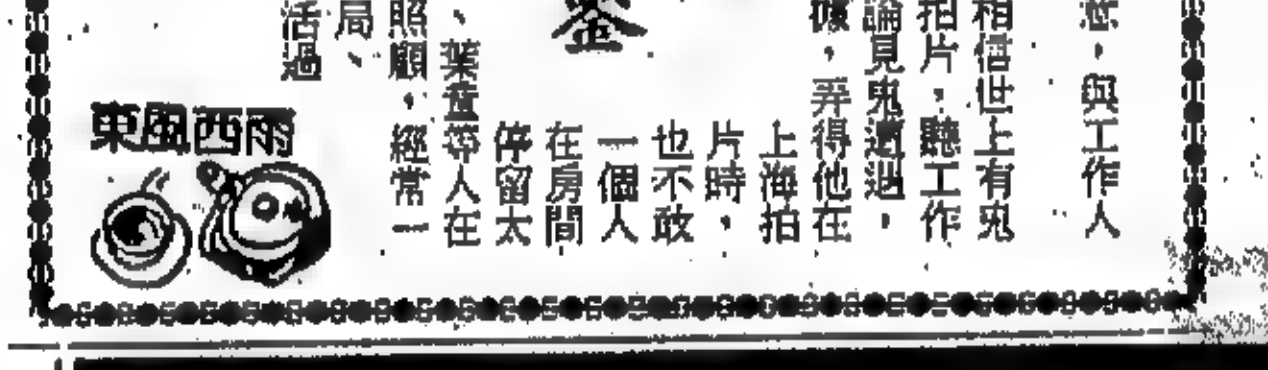 ,與工作人
相信世上有鬼
拍片,聽工作
論見鬼遭遇,
,弄得他在
上海拍
片時,
也不敢
一個人
在房間
停留太
、葉童等人在
照顧,經常一
局、
活過
東風西雨